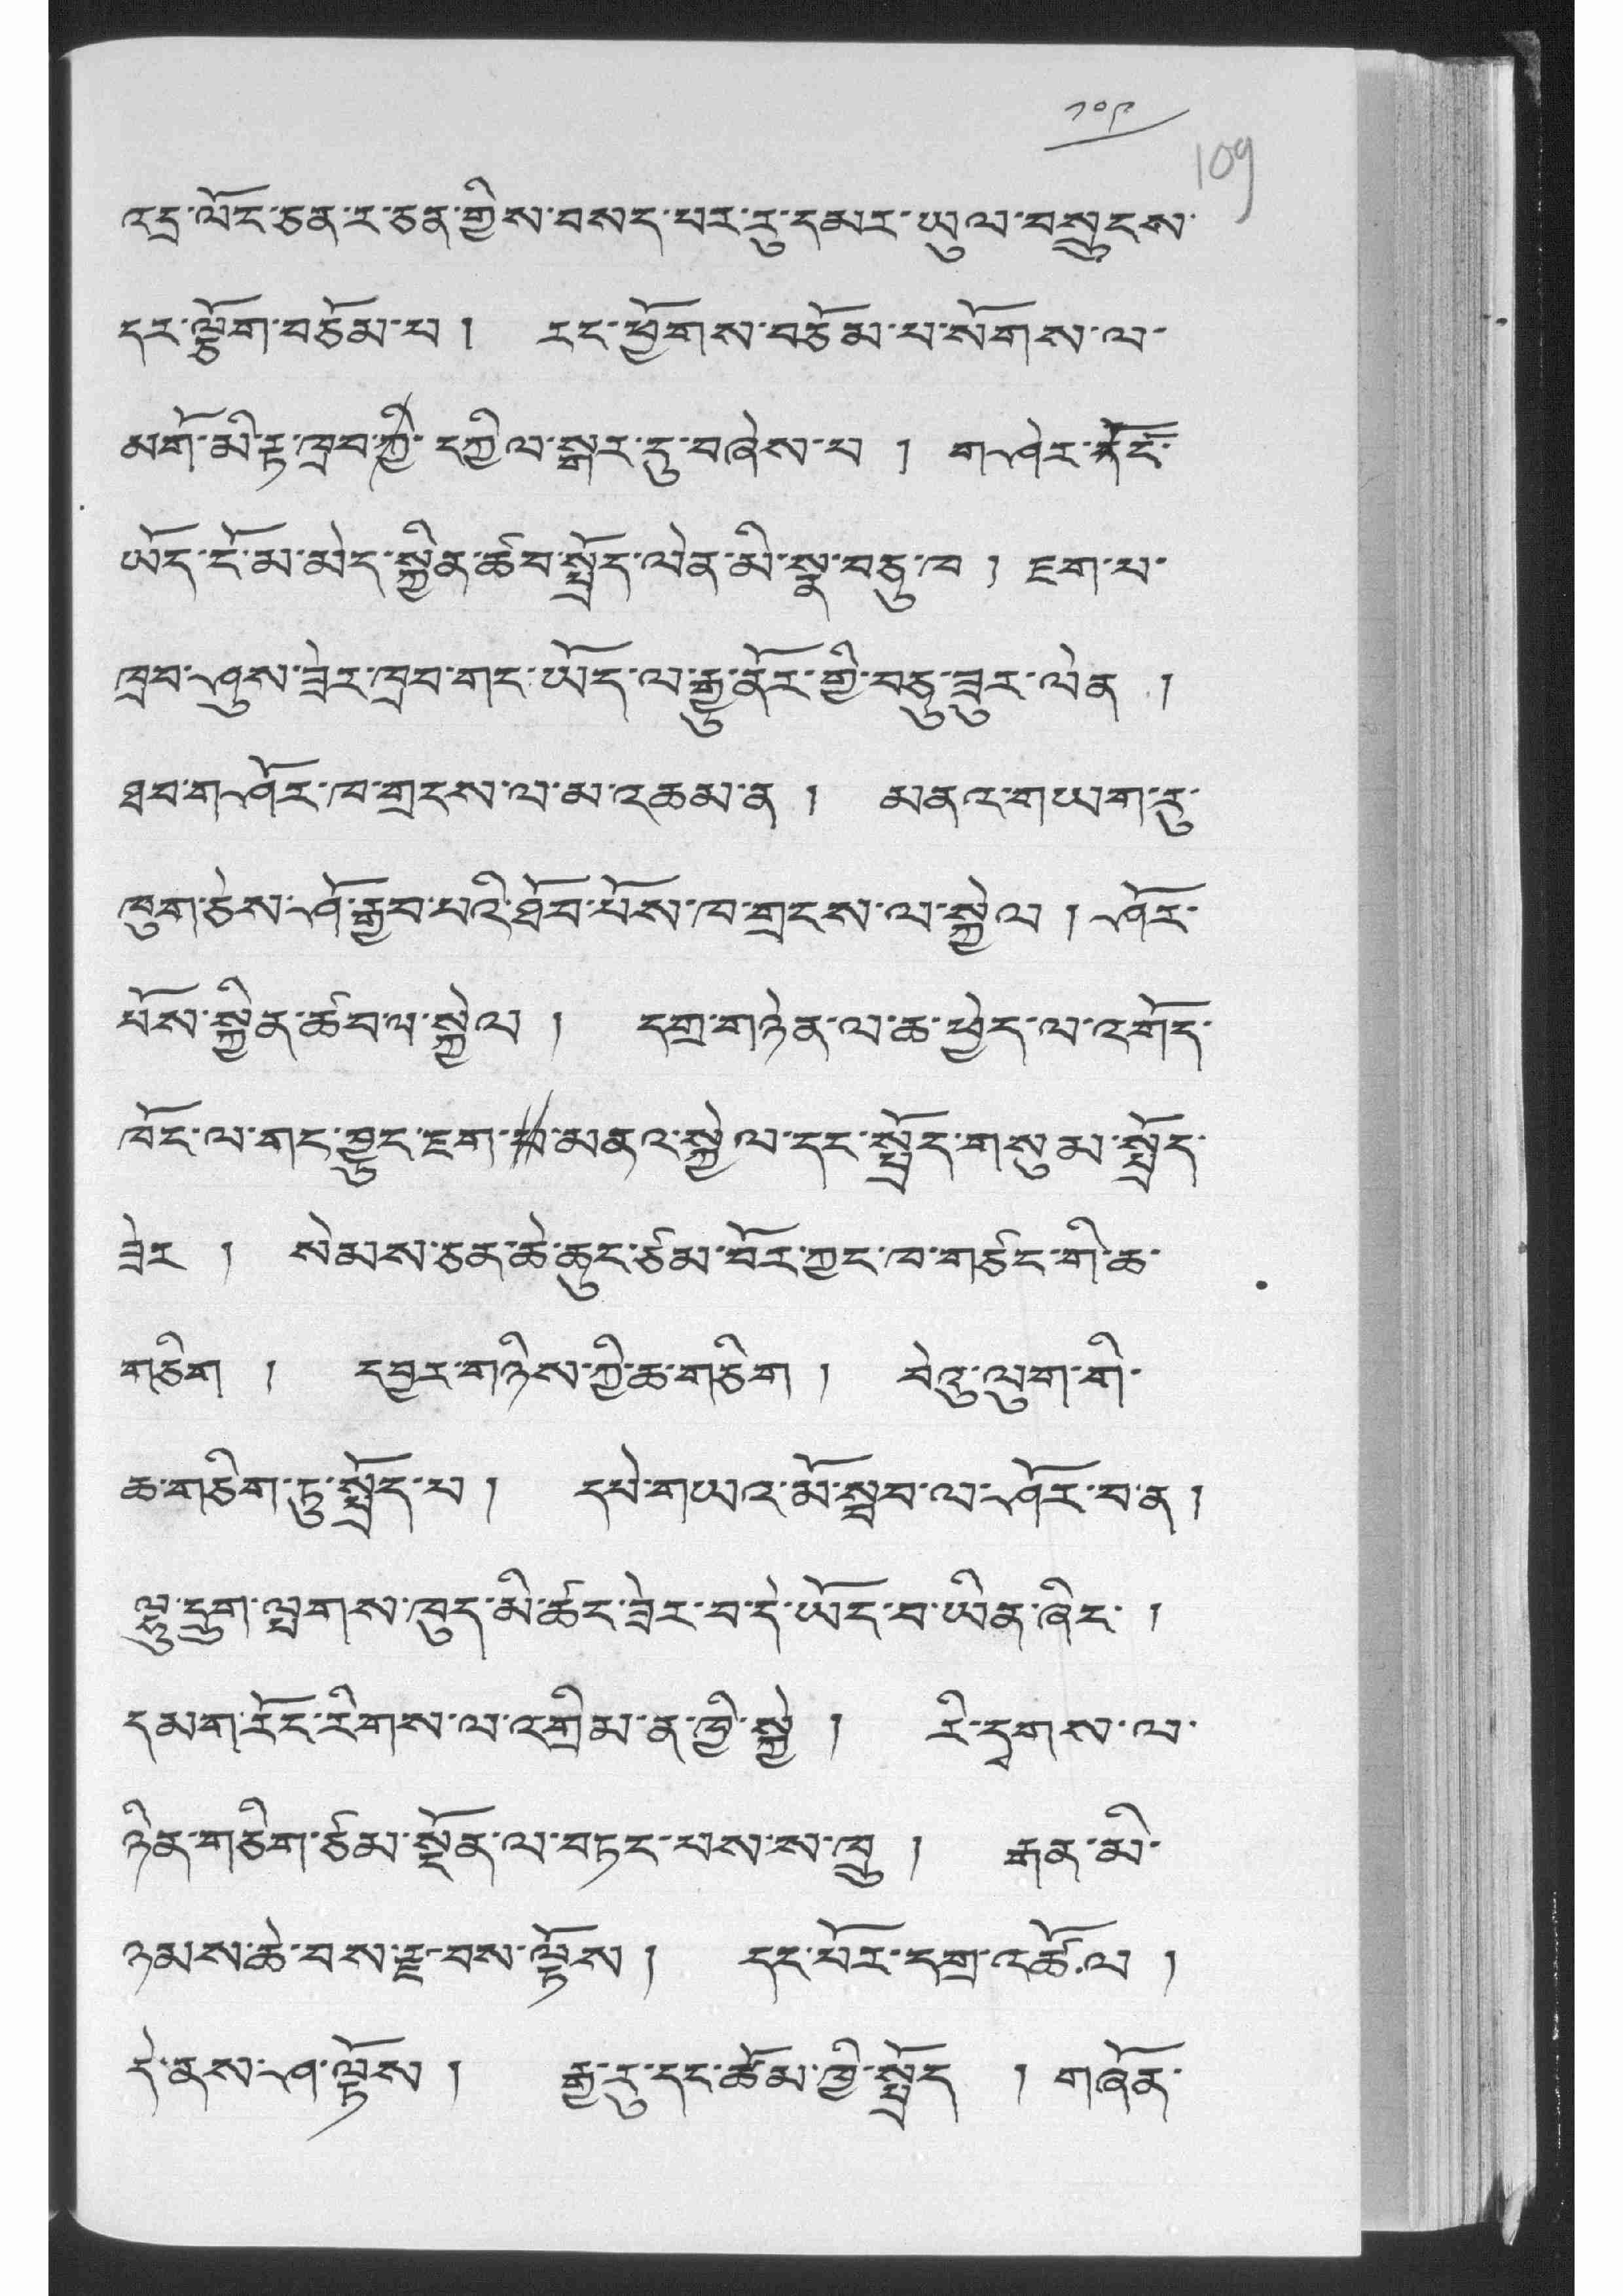 ༡༠༩
109
འདྲ་ལོང་ཅན་ར་ཅན་གྱིས་བསད་པར་རུ་དམར་ཡུལ་བསྲུངས་
དར་ལྕོག་བཅོམ་པ། རང་ཕྱོགས་བཅོམ་པ་སོགས་ལ་
མགོ་མི་རྟ་ཁྲབ་ཀྱི་དཀྱིལ་སྒར་དུ་བཞེས་པ། གཤེར་ངོ་
ཡོད་ངོ་མ་མེད་སྐྱིན་ཚབ་སྤྲོད་ལེན་མི་སྣ་བཅུ་ཁ། ཇག་པ་
ཁྲབ་ཤུས་ཟེར་ཁྲབ་གང་ཡོད་ལ་རྒྱུ་ནོར་གྱི་བཅུ་ཟུར་ལེན།
ཐབ་གཤོར་ཁ་གྲངས་ལ་མ་འཆམ་ན། མནའ་གཡག་རུ་
ཁུག་ཅེས་ཤོ་རྒྱབ་པའི་ཐོབ་པོས་ཁ་གྲངས་ལ་སྐྱེལ། ཤོར་
པོས་སྐྱིན་ཚབ་ལ་སྐྱེལ། དགྲ་གཉེན་ལ་ཆ་ཕྱེད་ལ་འགོད་
ཁོང་ལ་གང་བྱུང་ཇག་མནའ་སྐྱེལ་དང་སྤྲོད་གསུམ་སྤྲོད་
ཟེར། སེམས་ཅན་ཆེ་ཆུང་ཙམ་བོར་ཀྱང་ཁ་གཙང་གི་ཆ་
གཅིག། དབྱར་གཉིས་ཀྱི་ཆ་གཅིག། བེའུ་ལུག་གི་
ཆ་གཅིག་ཏུ་སྤྲོད་པ། དཔེ་གཡའ་མོ་སྦྲབ་ལ་ཤོར་བ་ན།
ལྷུ་དྲུག་ལྤགས་ཁུང་མི་ཚང་ཟེར་བ་དེ་ཡོད་བ་ཡིན་ཞིང་།
དམག་རོང་རིགས་ལ་འགྲིམ་ན་ཁྱི་སྐྱེ། རི་དྭགས་ལ་
ཉིན་གཅིག་ཙམ་སྔོན་ལ་བཏང་པས་ས་ཁྲུ། རྒན་མི་
ཉམས་ཆེ་བས་རྫ་བས་ལྟོས། དང་པོར་དགྲ་འཚོལ།
དེ་ནས་ཤ་ལྟོས། རྒྱ་རུ་དང་ཚོམ་ཁྱི་སྤྲོད། གཞོན་